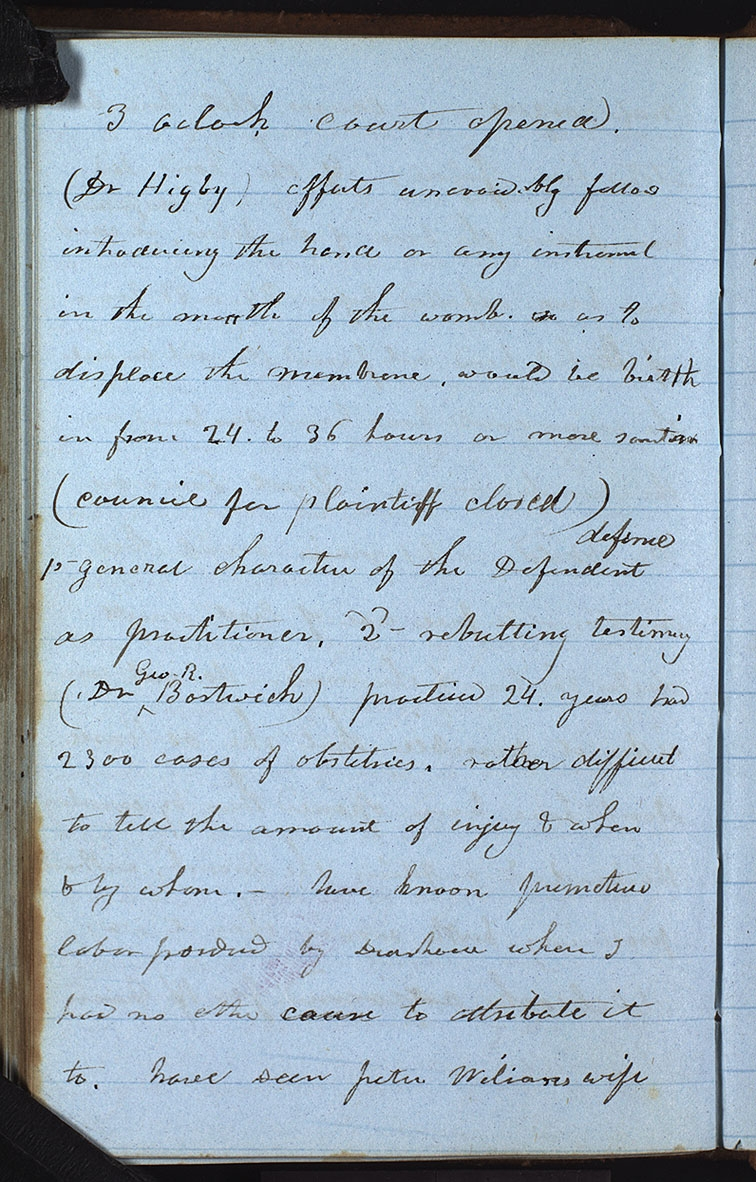 3 oclock court opened.
(Dr Higby) effects unavoidably follow
introducing the hand or any instrument
in the mouth of the womb. so as to
displace the membrane, would be birth
in from 24. to 36 hours or more
(council for plaintiff closed)
defence
1st general character of the Defendent
as practitioner, 2 - rebutting testimony
Geo. R.
(Dr Bostwick) practice 24. years had
2300 cases of obstetrics. rather difficult
to tell the amount of injury & when
& by whom. - have known premature
labor produced by diarhoea when I
had no other cause to attribute it
to. have seen peter Williams wife